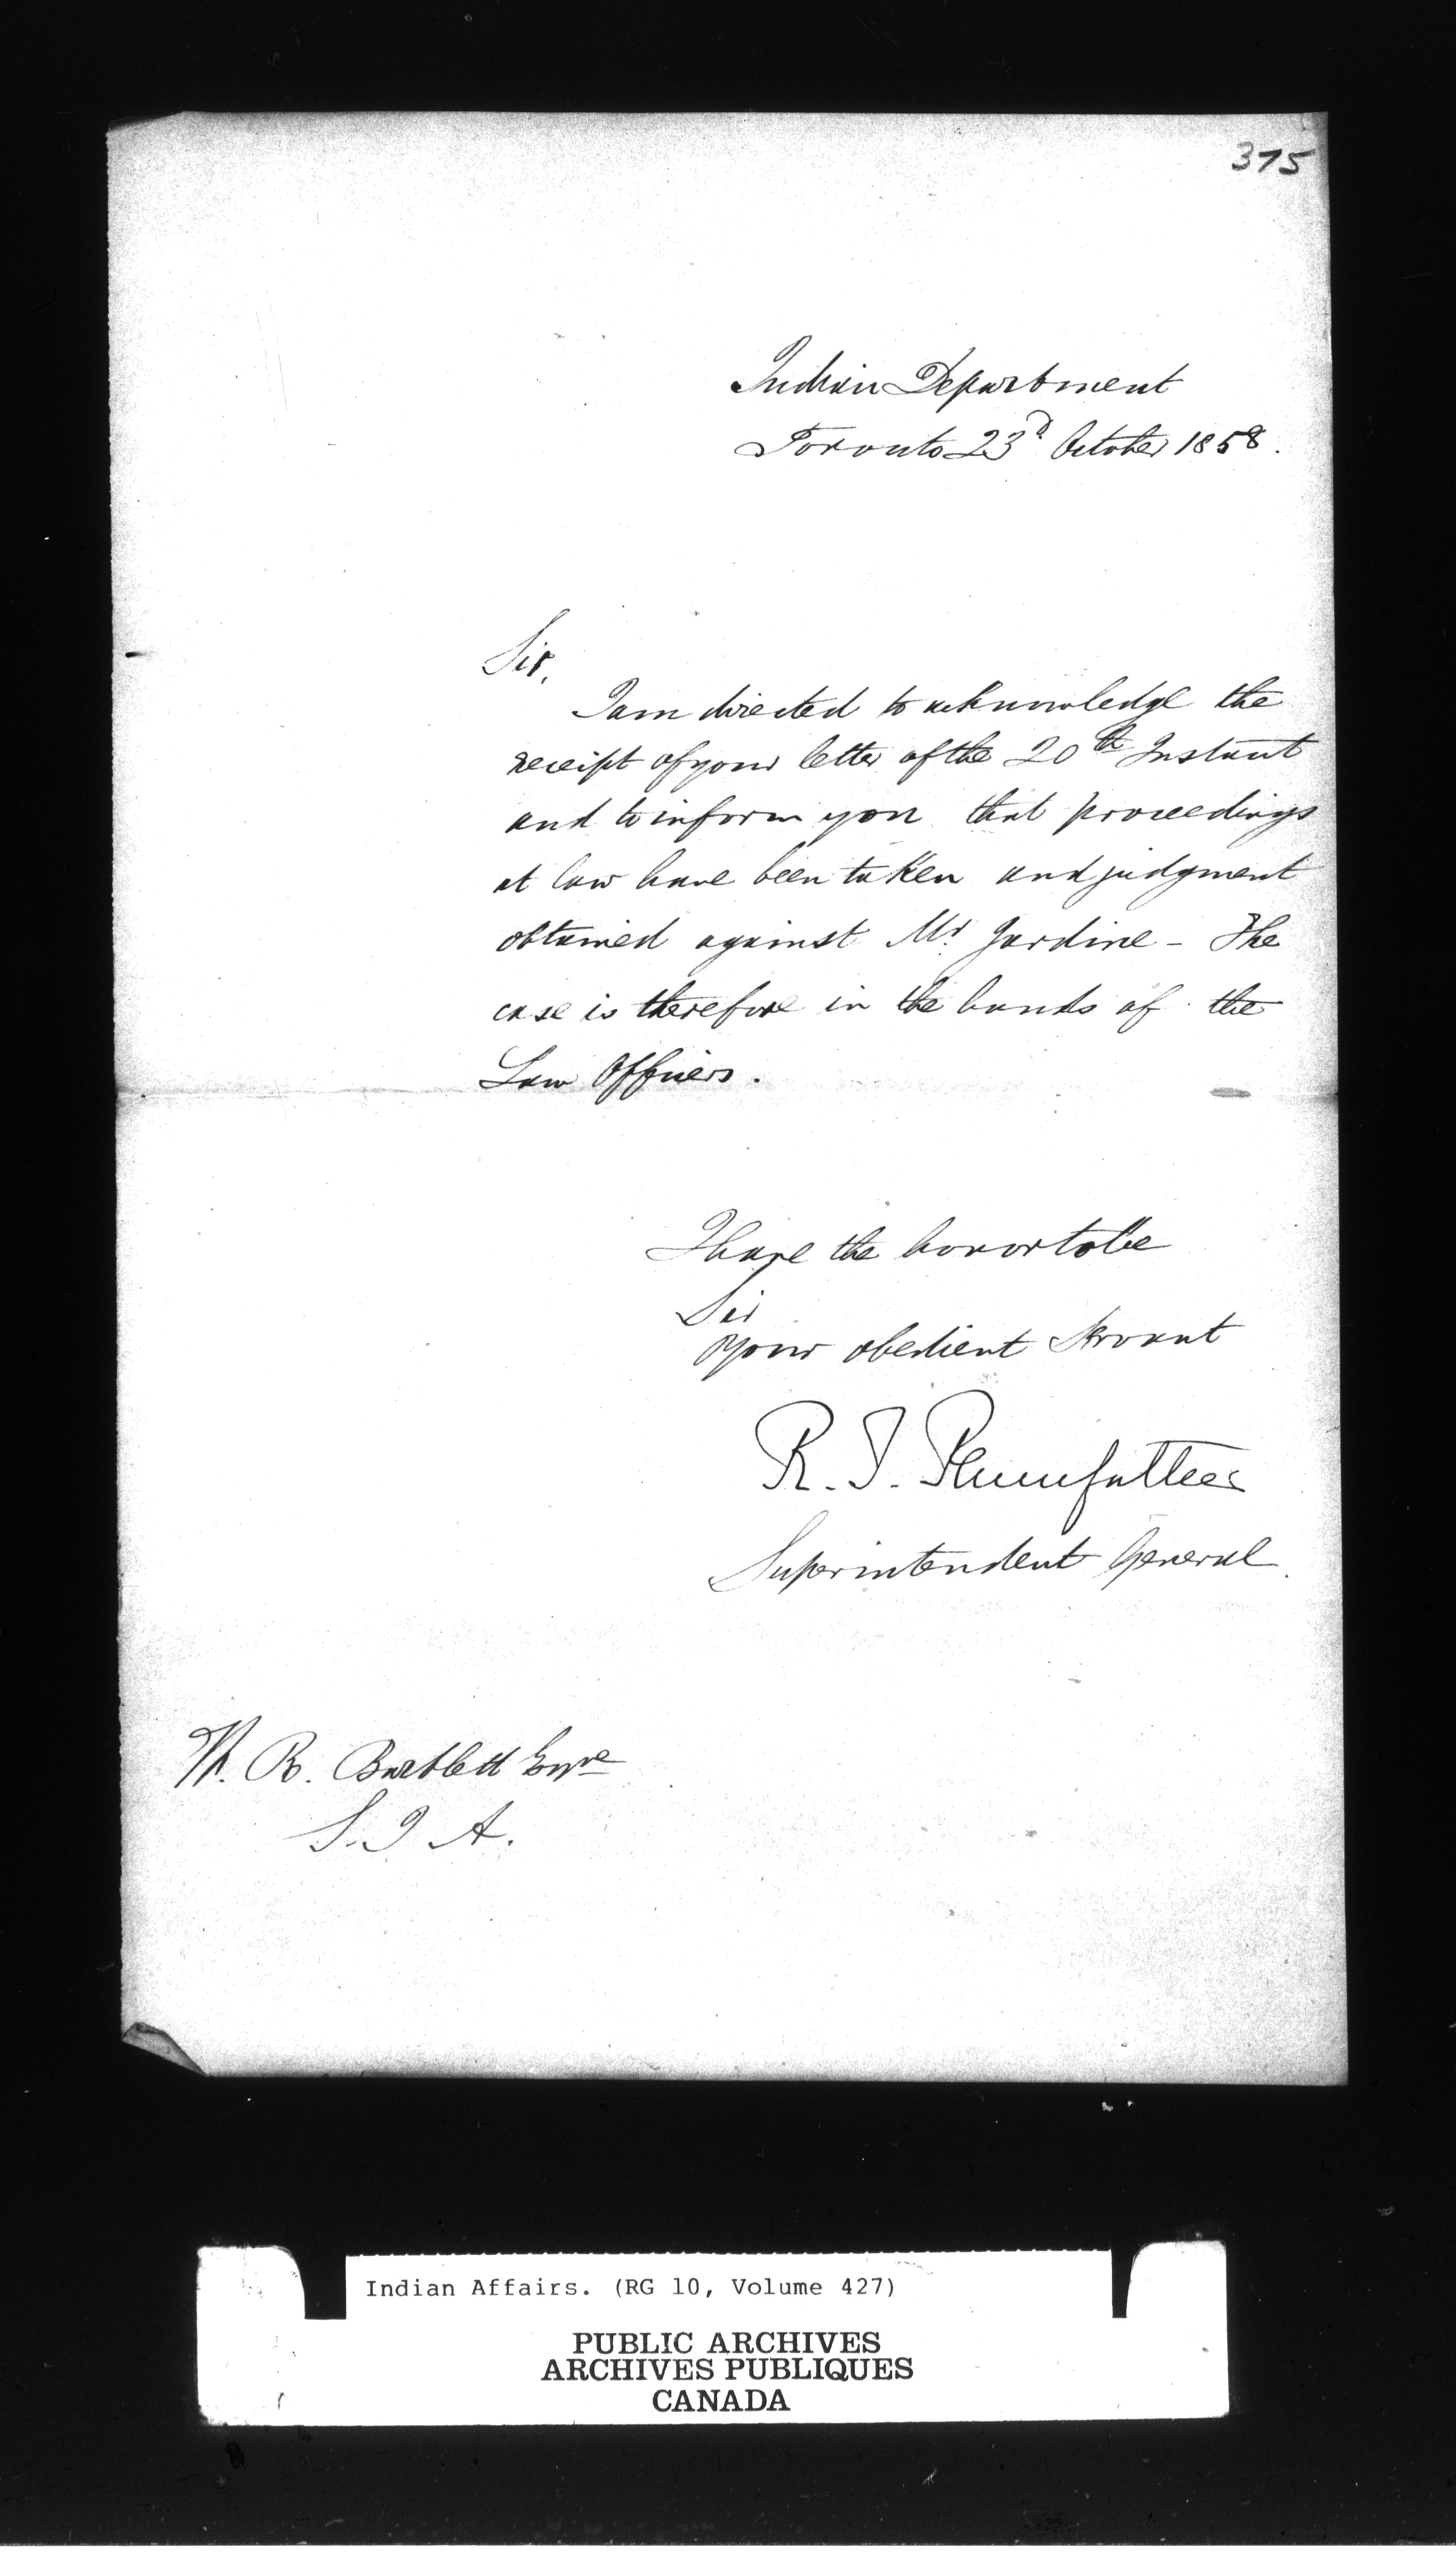 375
Indian Department
Toronto 23d October 1858.
Sir,
I am directed to acknowledge the
receipt of your letter of the 20th Instant
and to inform you that proceedings
at law have been taken and judgment
obtained against Mr. Jardine - The
case is therefore in the hands of the
Law Officers.
I have the honor to be
Sir
Your obedient Servant
R. T. Pennefather
Superintendent General.
W. R. Bartlett Esqre
S. I A.
Indian Affairs. (RG 10, Volume 427)
PUBLIC ARCHIVES
ARCHIVES PUBLIQUES
CANADA